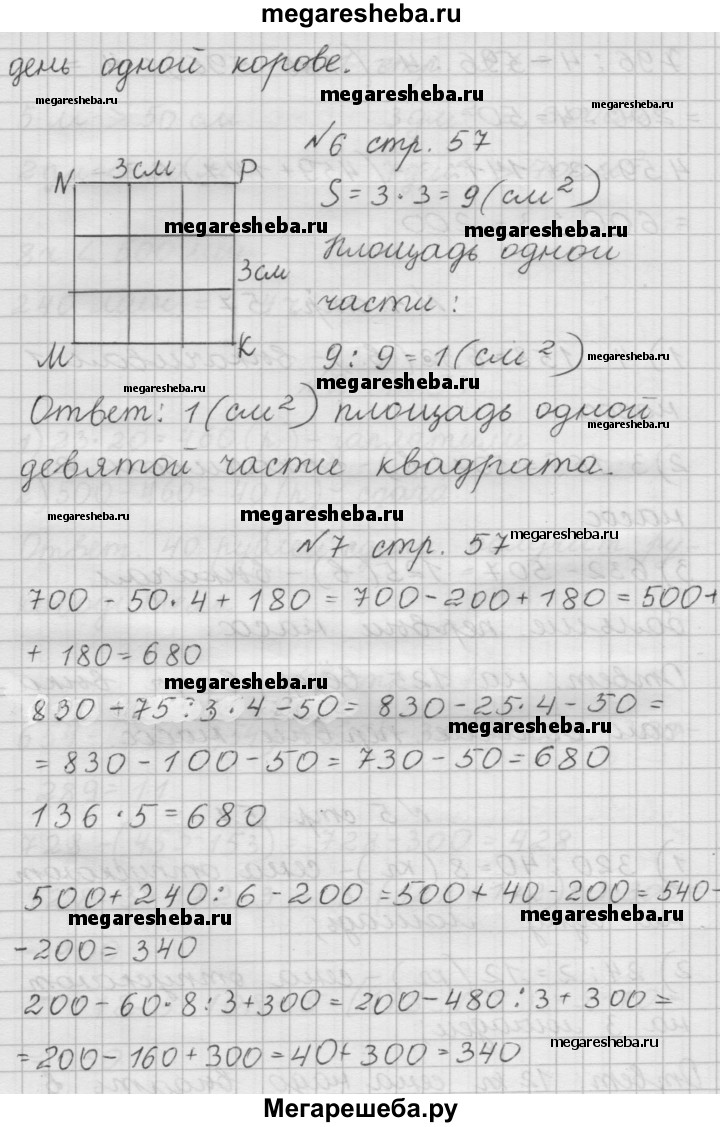 megaresheba.ru
день одной корове.
megaresheba.ru megaresheba.ru megaresheba.ru
№6 стр. 57
N 3см P
S = 3 · 3 = 9 (см²)
megaresheba.ru megaresheba.ru
Площадь одной
3см
части:
M K
9 : 9 = 1 (см²) megaresheba.ru
megaresheba.ru megaresheba.ru
Ответ: 1 (см²) площадь одной
megaresheba.ru
девятой части квадрата.
megaresheba.ru megaresheba.ru megaresheba.ru
№7 стр. 57
700 - 50 · 4 + 180 = 700 - 200 + 180 = 500 +
+ 180 = 680
megaresheba.ru
830 - 75 : 3 · 4 - 50 = 830 - 25 · 4 - 50 =
megaresheba.ru
= 830 - 100 - 50 = 730 - 50 = 680
136 · 5 = 680
500 + 240 : 6 - 200 = 500 + 40 - 200 = 540 -
megaresheba.ru megaresheba.ru
- 200 = 340
200 - 60 · 8 : 3 + 300 = 200 - 480 : 3 + 300 =
megaresheba.ru
= 200 - 160 + 300 = 40 + 300 = 340
Мегарешеба.ру